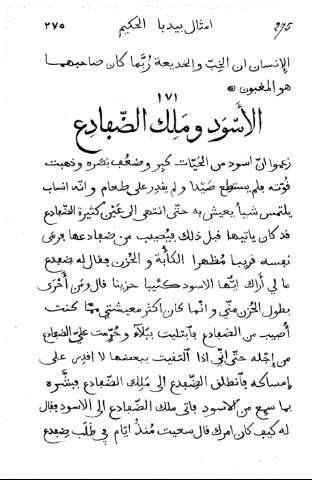 ٢٧٥ امثال بيدبا الحكيم 275
الإنسان ان الخبّ والخديعة ربّما كان صاحبهما
هو المغبون
١٧١
الأسود وملك الضفادع
زعموا انّ اسود من الحيّات كبر وضعف بصره وذهبت
قوّته فلم يستطع صيدًا ولم يقدر على طعام و انّه انساب
يلتمس شيأ يعيش به حتّى انتهى الى عين كثيرة الضفادع
قد كان ياتيها قبل ذلك فيصيب من ضفادعها فرمى
نفسه قريبا مظهرا الكآبة و الحزن فقال له ضفدع
ما لي أراك ايّها الاسود كئيبا حزينا قال ومن أحرى
بطول الحزن منّي و انّما كان اكثر معيشتي ممّا كنت
أصيب من الضفادع فآبتليت ببلاء و حرّمت عليّ الضفادع
من اجله حتّى انّي اذا التقيت ببعضها لا اقدر على
إمساكه فآنطلق الضفدع الى ملك الضفادع فبشّره
بما سمع من الاسود فاتى ملك الضفادع الى الاسود فقال
له كيف كان امرك قال سعيت منذ ايّام في طلب ضفدع